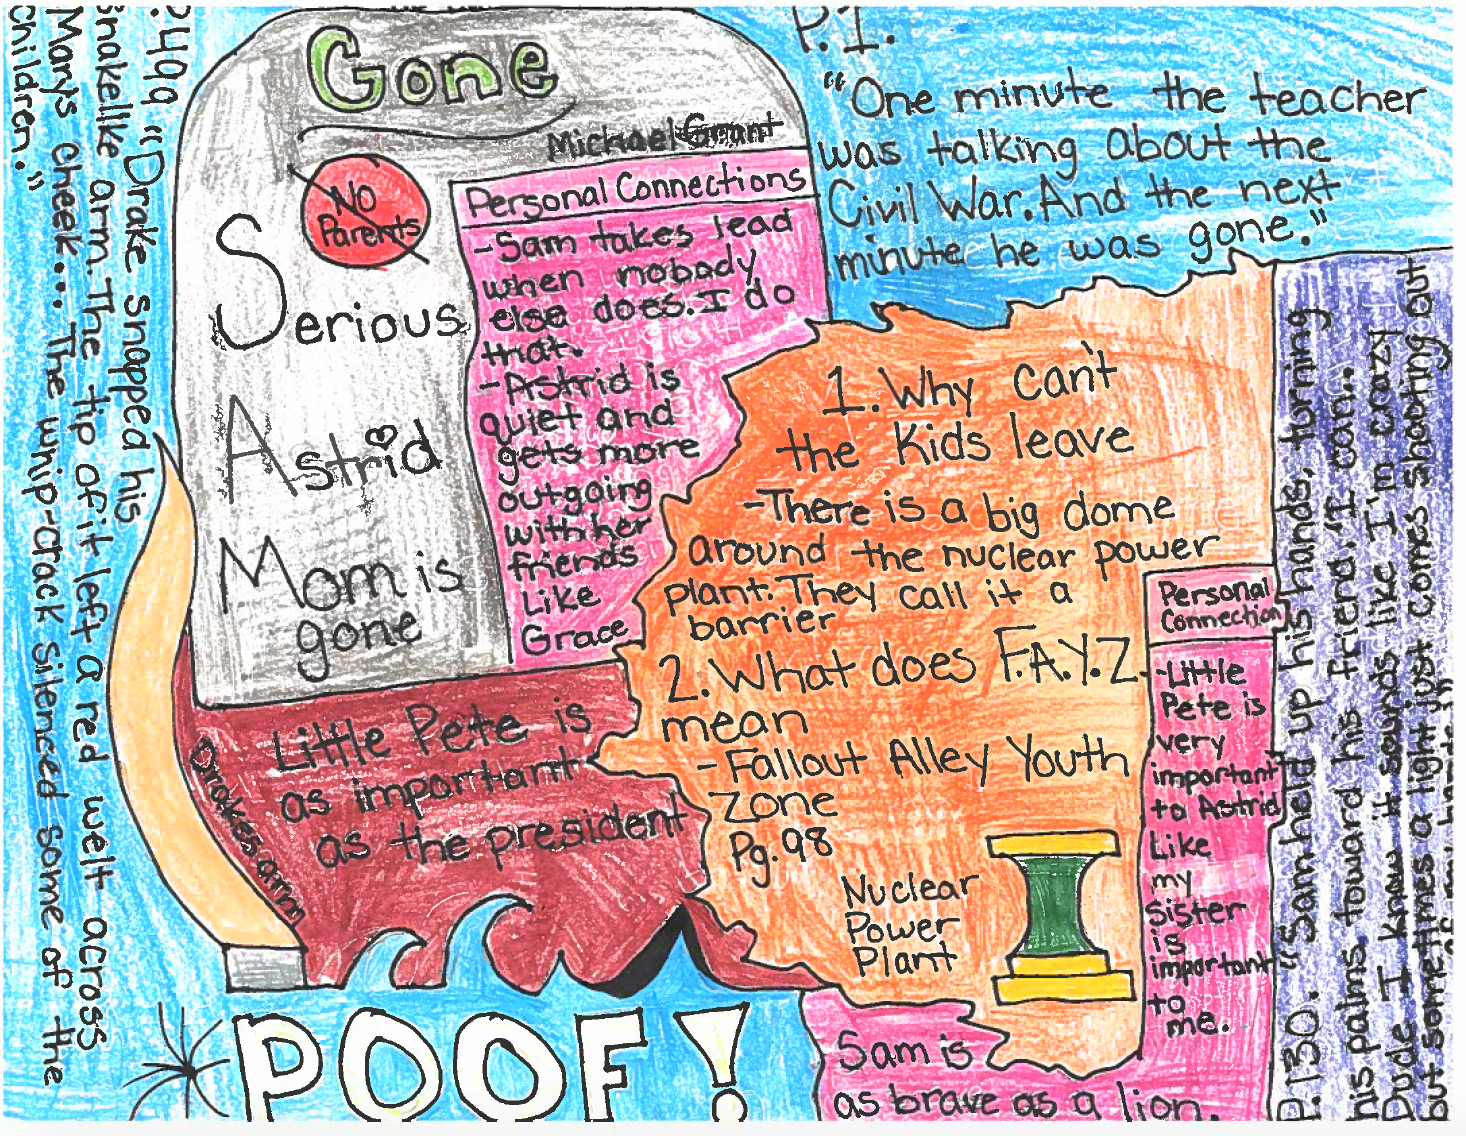 Gone
Michael Grant
No
Parents
Serious
Astrid
Mom is
gone
Personal Connections
-Sam takes lead
when nobody
else does. I do
that.
-Astrid is
quiet and
gets more
outgoing
with her
friends
Like
Grace
P.1.
"One minute the teacher
was talking about the
Civil War. And the next
minute he was gone."
1. Why can't
the kids leave
-There is a big dome
around the nuclear power
plant. They call it a
barrier
2. What does F.A.Y.Z.
mean
- Fallout Alley Youth
Zone
Pg. 98
Nuclear
Power
Plant
Personal
Connection
-Little
Pete is
very
important
to Astrid
Like
my
sister
is
important
to
me.
Little Pete is
as important
as the president
Drakes arm
POOF!
Sam is
as brave as a lion.
P.499 "Drake snapped his
snakelike arm. The tip of it left a red welt across
Mary's cheek... The whip-crack silenced some of the
children."
P.130. "Sam held up his hands, turning
his palms toward his friend. "I can...
Dude I know it sounds like I'm crazy
but sometimes a light just comes shooting out